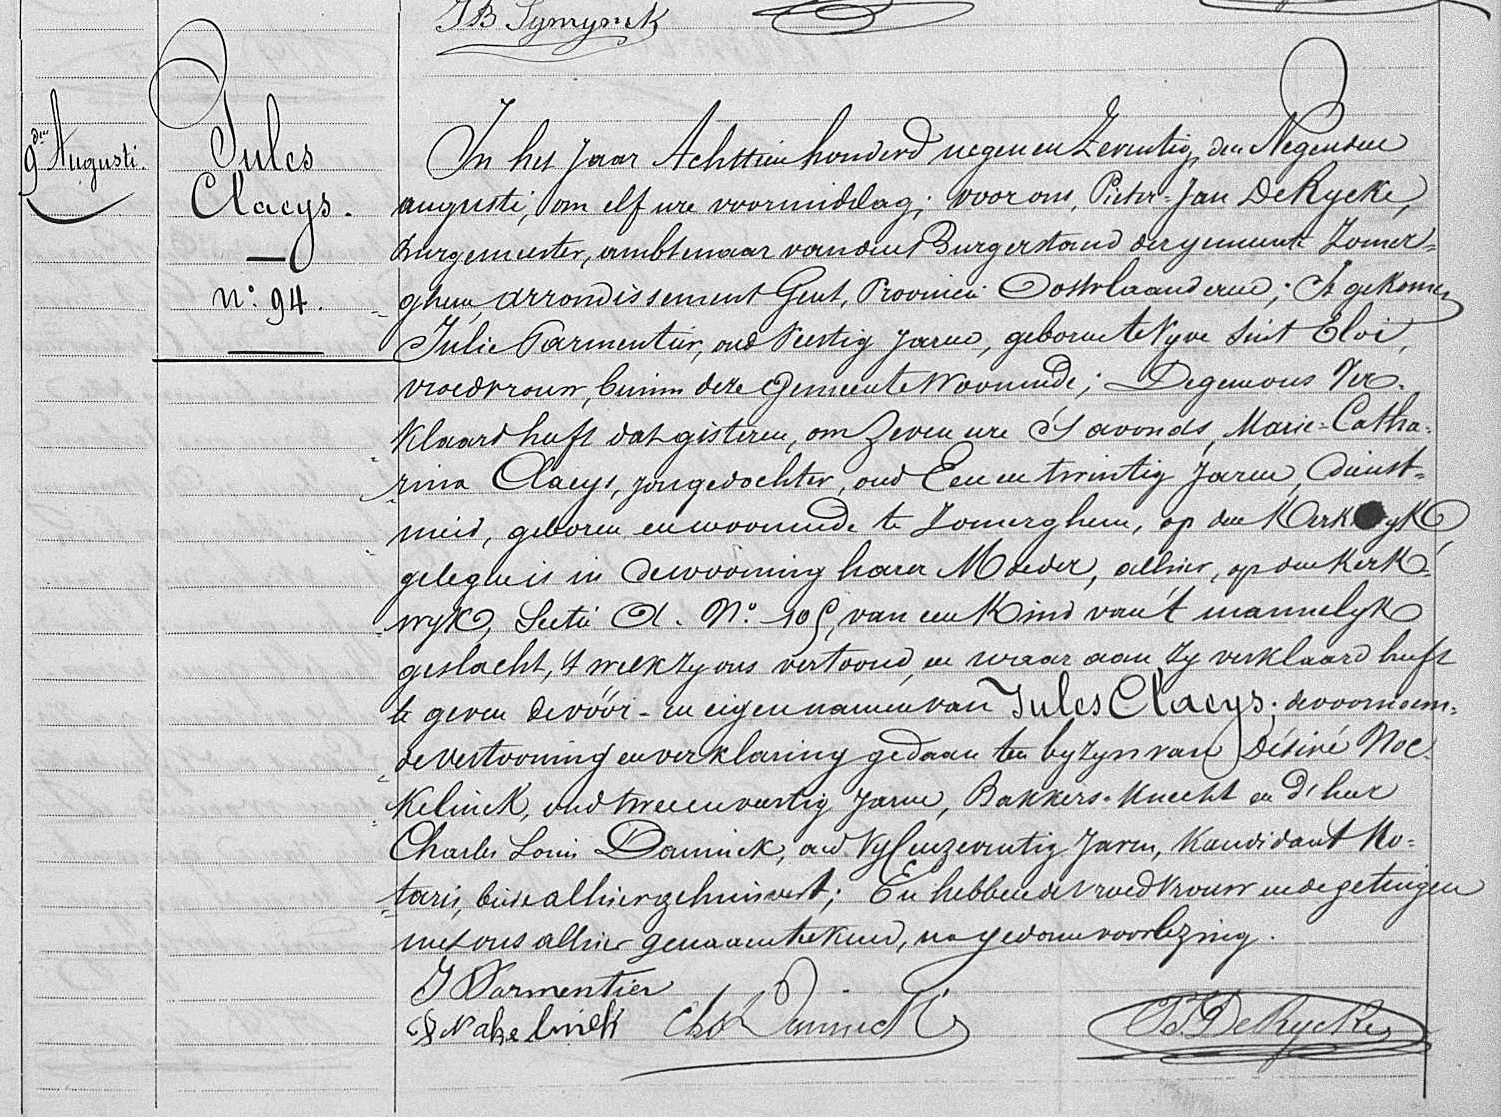 JB Symynck
9den Augusti.
Jules
Claeys.
n: 94.
In het Jaar Achttien honderd negen en Zeventig, den Negensten
augusti, om elf ure voormiddag; voor ons, Pieter-Jan DeRycke,
burgemeester, ambtenaar van den Burgerstand der gemeente Zomer=
ghem, arrondissement Gent, Provincie Oostvlaanderen; Is gekomen
Julie Parmentier, oud Veertig Jaren, geboren te Vyve Sint Eloi,
vroedvrouw, binnen deze Gemeente Woonende; Degene ons Ver-
klaard heeft dat gisteren, om Zeven ure 's avonds, Marie-Catha-
rina Claeys, jongedochter, oud Een en twintig Jaren, dienst-
meid, geboren en woonende te Zomerghem, op den Kerkwyk,
gelegen is in de wooning harer Moeder, alhier, op den Kerk-
wyk, Sectie A. No. 105, van een Kind van 't mannelyk
geslacht, 't welk zy ons vertoond, en waar aan zy verklaard heeft
te geven de vöör- en eigen namen van Jules Claeys; de voornoem-
de vertooning en verklaring gedaan ten byzyn van Désiré Noc-
kelinck, oud twee en veertig Jaren, Bakkers-knecht en d'heer
Charles Louis Dannick, oud Vyf en zeventig Jaren, Kandidaat No-
taris, beide alhier gehuisvest; En hebben de Vroedvrouw en de getuigen
met ons alhier genaamteekend, na gedane voorlezing.
J Parmentier
Chs L Dannick
PJ DeRycke